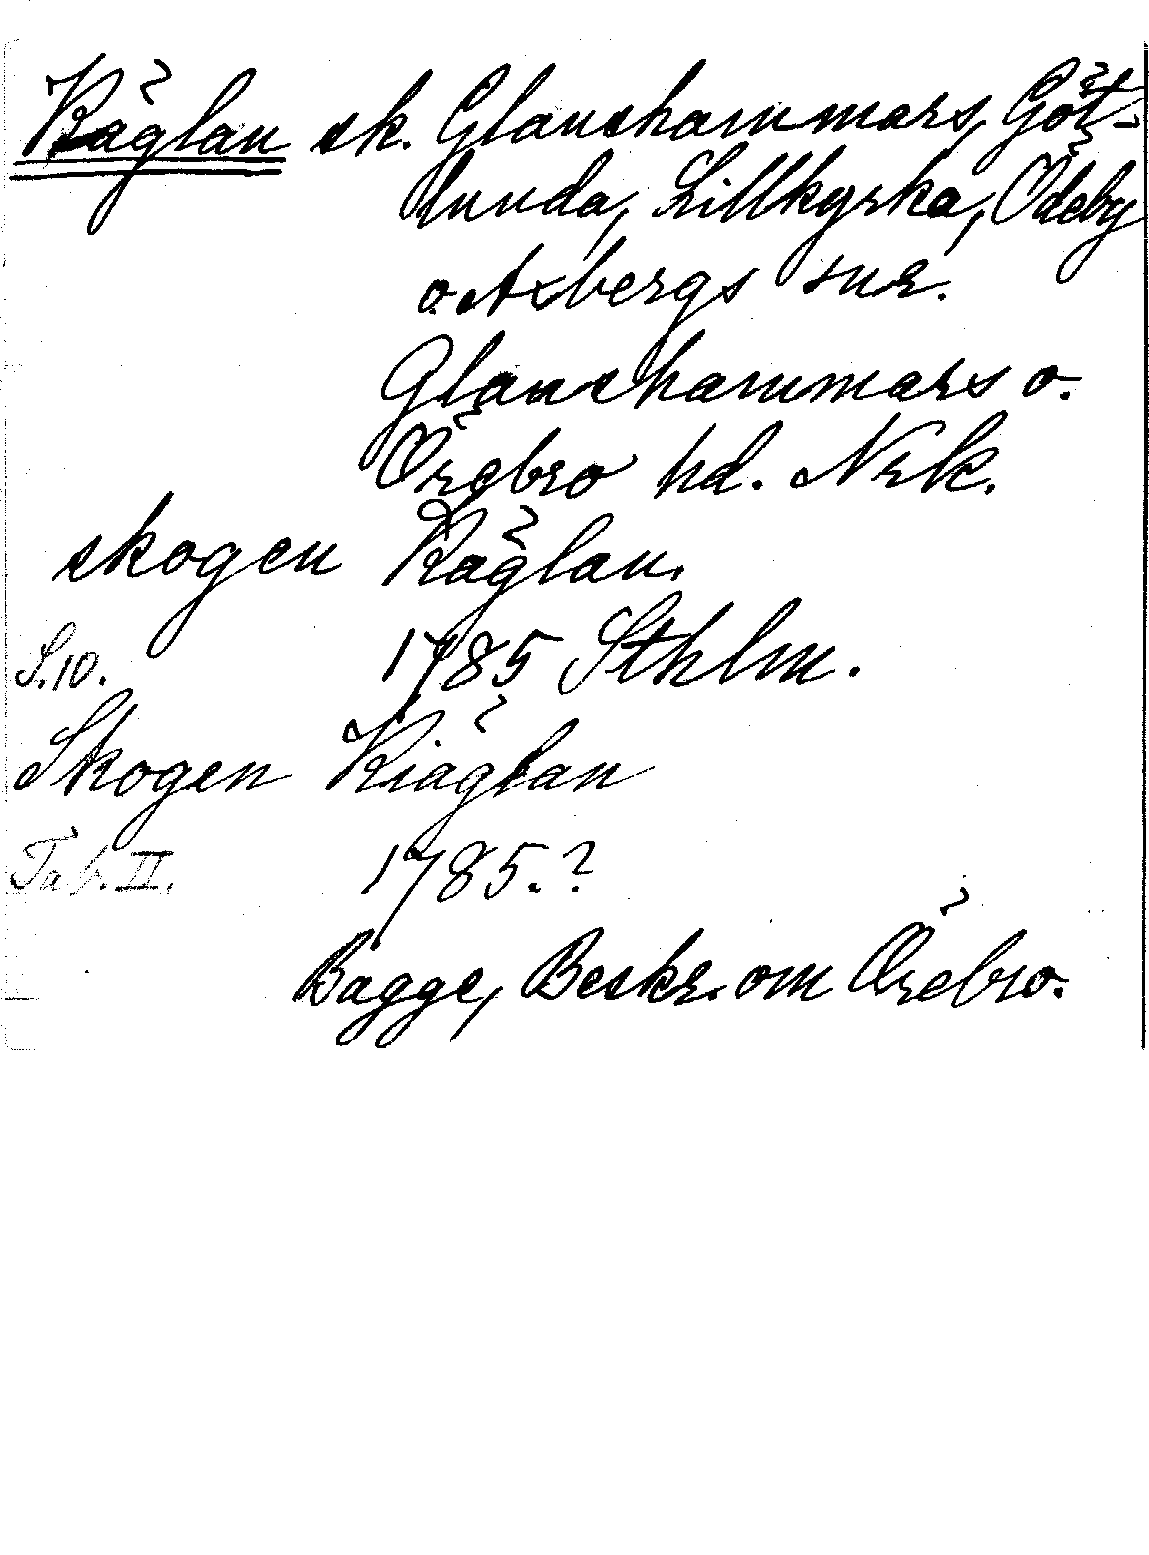 Käglan sk. Glanshammars, Göt-
lunda, Lillkyrka, Ödeby
o. Axbergs snr.
Glanshammars o.
Örebro hd. Nrk.
skogen Käglan.
S. 10. 1785 Sthlm.
Skogen Kiäglan
Tab. II. 1785.?
Bagge, Beskr. om Örebro.